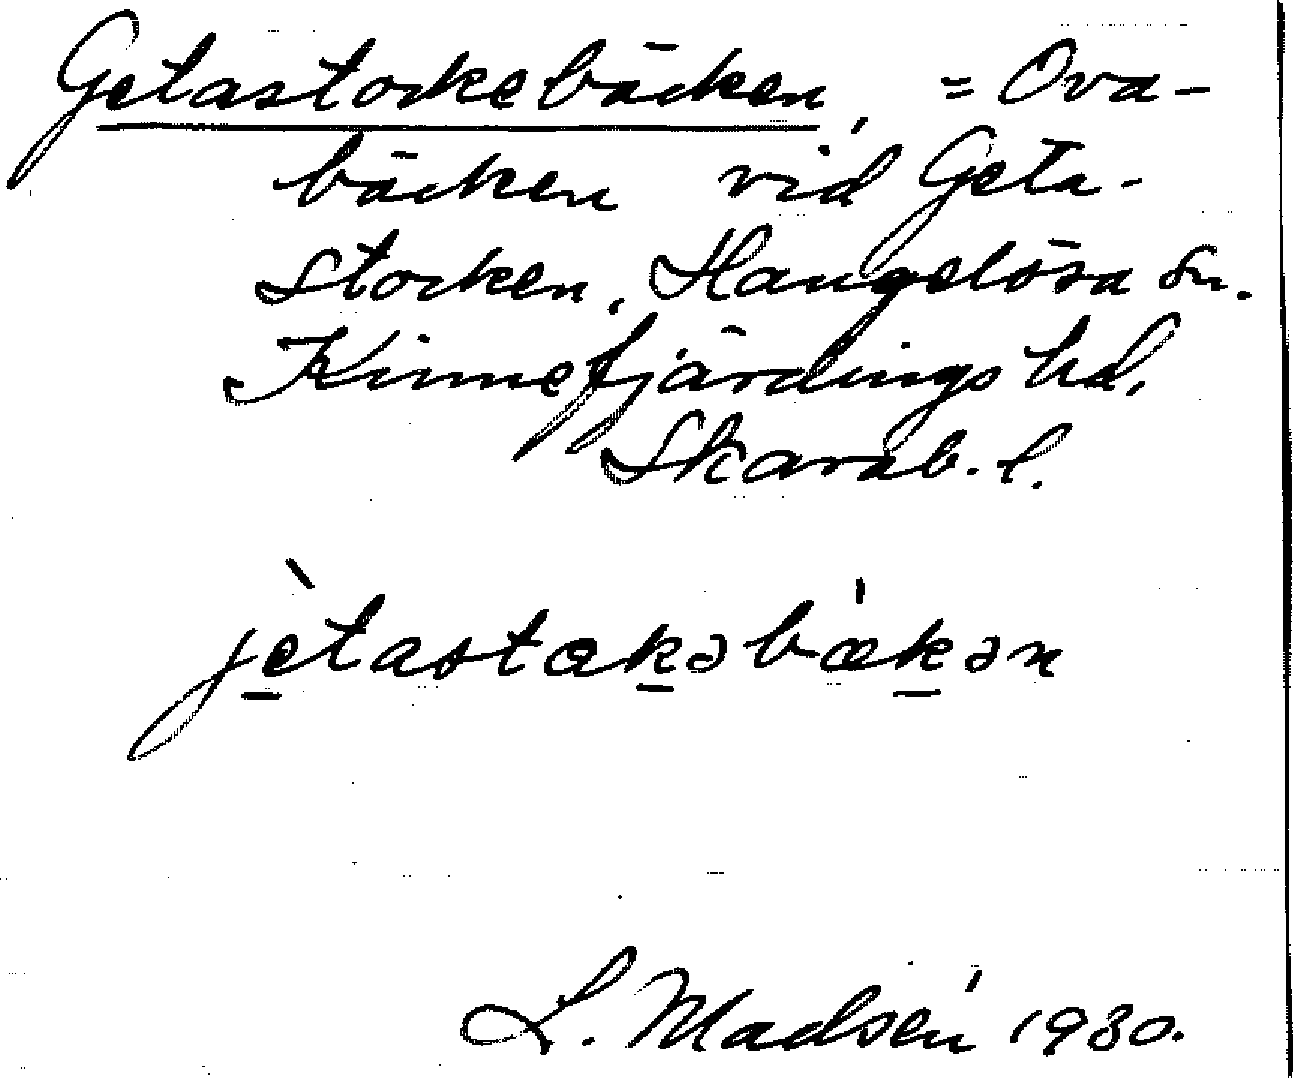 Getastockebäcken, = Ova-
bäcken vid Geta-
stocken, Hangelösa sn.
Kinnefjärdings hd,
Skarab. l.
jètastakəbækən
L. Madsén 1930.